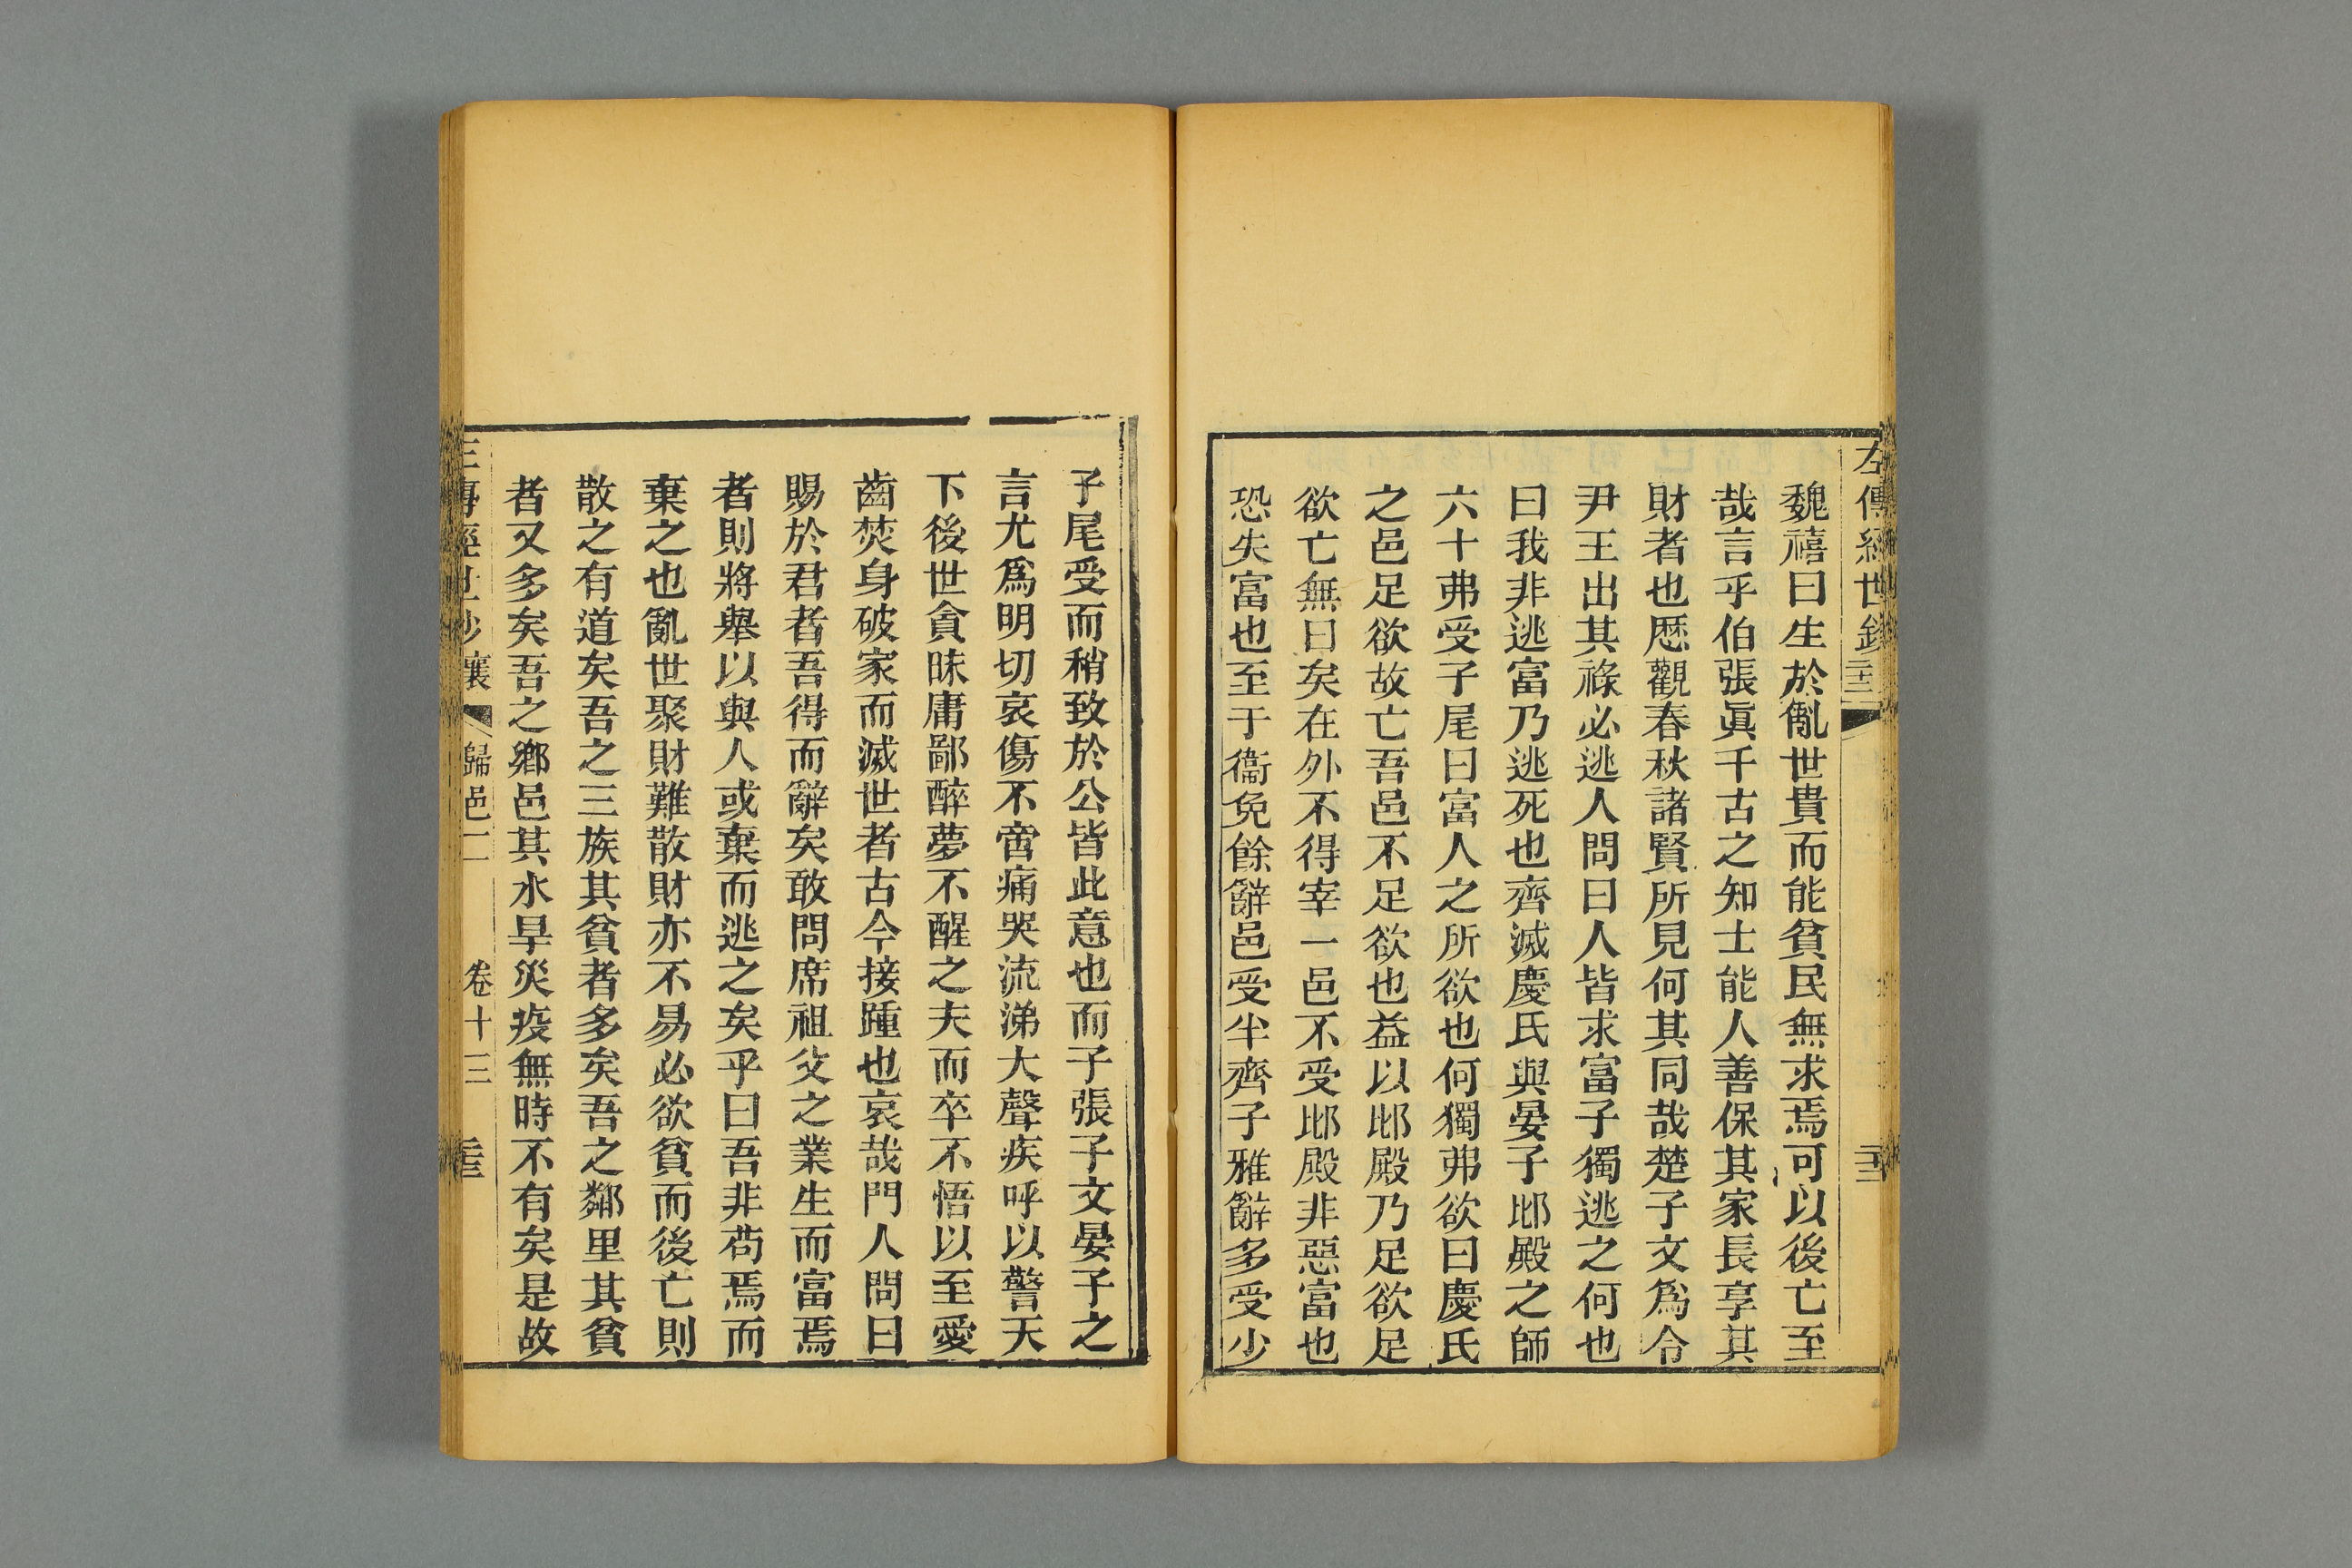 左傳經世鈔
魏禧曰生於亂世貴而能貧民無求焉可以後亡至
哉言乎伯張眞千古之知士能人善保其家長享其
財者也歷觀春秋諸賢所見何其同哉楚子文爲令
尹王出其祿必逃人問曰人皆求富子獨逃之何也
曰我非逃富乃逃死也齊滅慶氏與晏子邶殿之師
六十弗受子尾曰富人之所欲也何獨弗欲曰慶氏
之邑足欲故亡吾邑不足欲也益以邶殿乃足欲足
欲亡無日矣在外不得宰一邑不受邶殿非惡富也
恐失富也至于衞免餘辭邑受半齊子雅辭多受少
子尾受而稍致於公皆此意也而子張子文晏子之
言尤爲明切哀傷不啻痛哭流涕大聲疾呼以警天
下後世貪昧庸鄙醉夢不醒之夫而卒不悟以至愛
齒焚身破家而滅世者古今接踵也哀哉門人問曰
賜於君者吾得而辭矣敢問席祖父之業生而富焉
者則將舉以與人或棄而逃之矣乎曰吾非苟焉而
棄之也亂世聚財難散財亦不易必欲貧而後亡則
散之有道矣吾之三族其貧者多矣吾之鄰里其貧
者又多矣吾之鄉邑其水旱災疫無時不有矣是故
左傳經世鈔 襄 歸邑一 卷十三